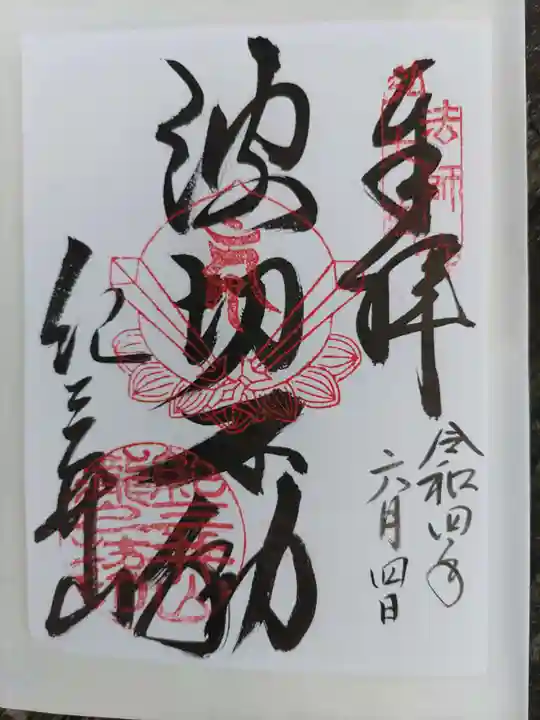 奉拝
令和四年
六月四日
波切不動
紀三井山
法師